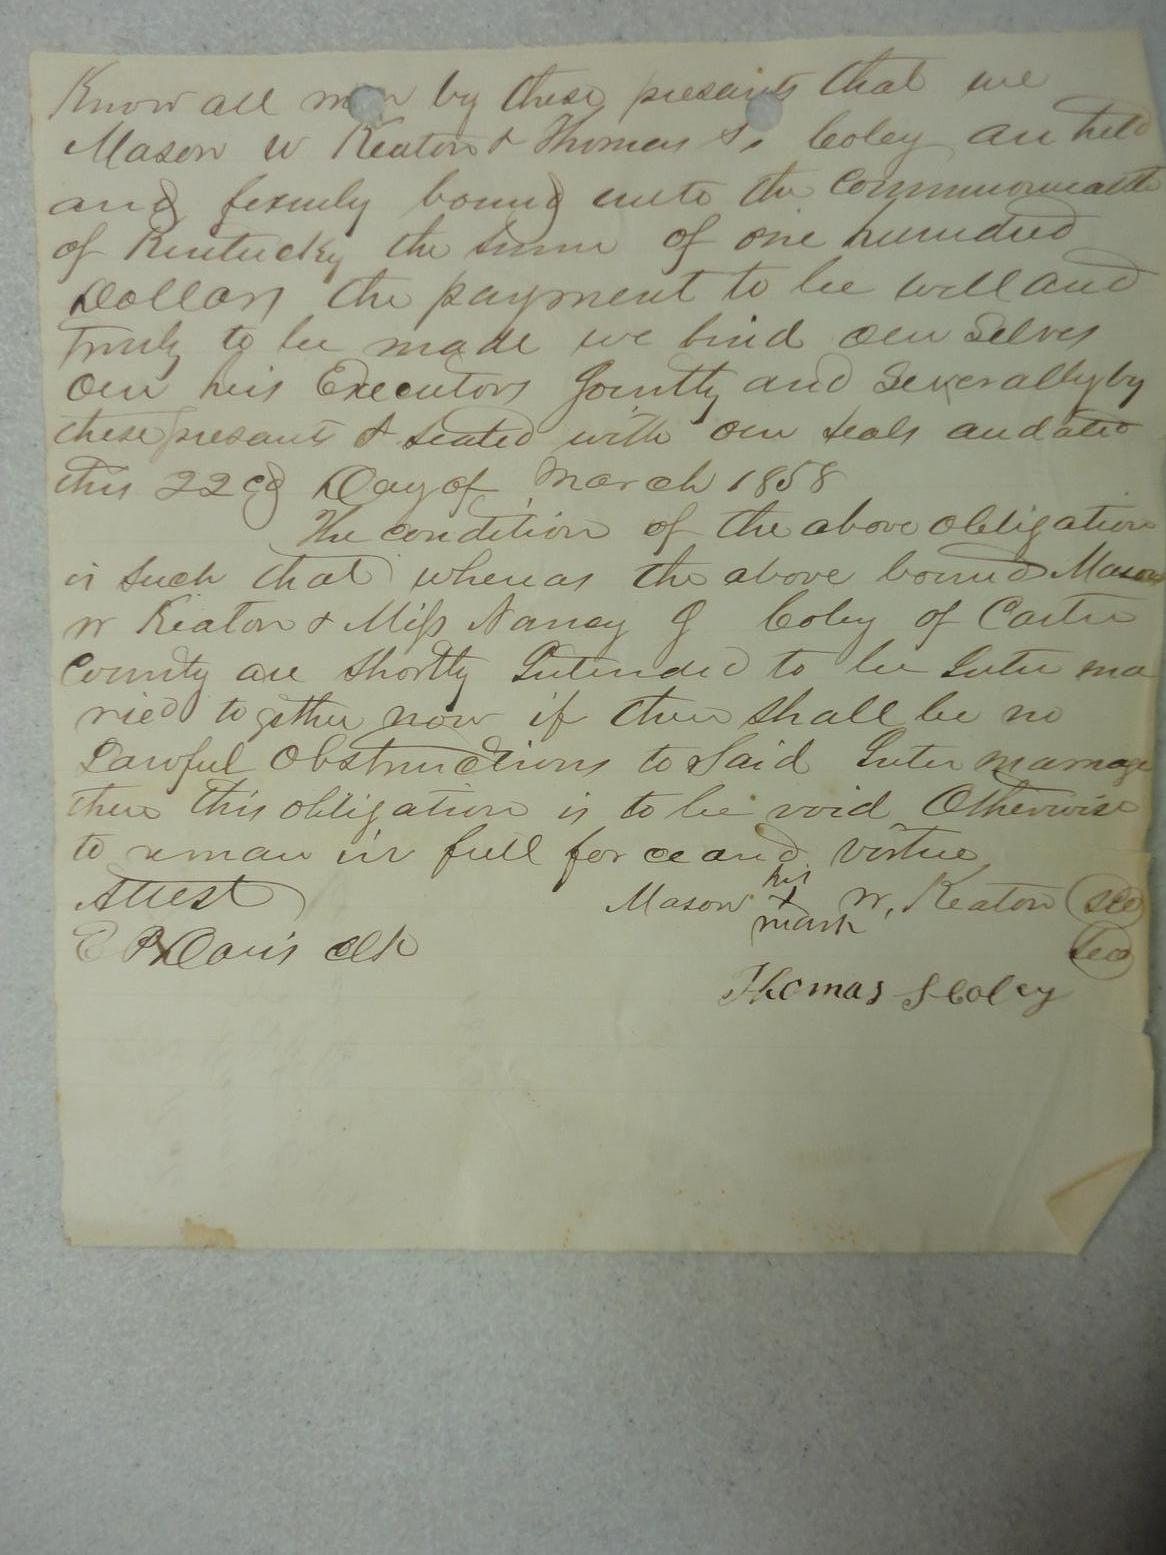 Know all men by these presants that we
Mason W Keaton & Thomas S. Coley are held
and firmly bound unto the Commonwealth
of Kentucky the sum of one hundred
Dollars the payment to be well and
truly to be made we bind our selves
our heis Executors Jointly and Severally by
these presants & sealed with our seals and dated
this 22cd Day of March 1858
The condition of the above obligation
is such that whereas the above bound Mason
W Keaton & Miss Nancy J Coley of Carter
County are shortly Intended to be Inter ma
ried together now if there shall be no
Lawful Obstructions to said Inter marriage
then this obligation is to be void Otherwise
to remain in full force and virtue
Attest
Mason his X mark W. Keaton seal
E P Davis clk
seal
Thomas S Coley